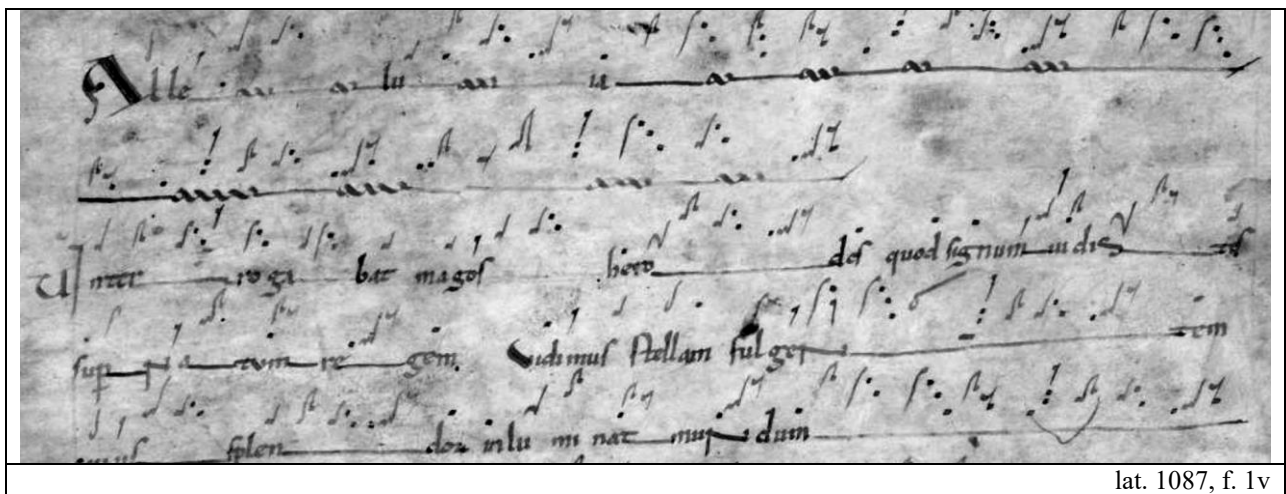 Alle lu ia
V Inter ro ga bat magos hero des quod signum uidis tis
sup n a tum re gem. Vidimus stellam fulgen tem
cuius splen dor inlu mi nat mun dum
lat. 1087, f. 1v